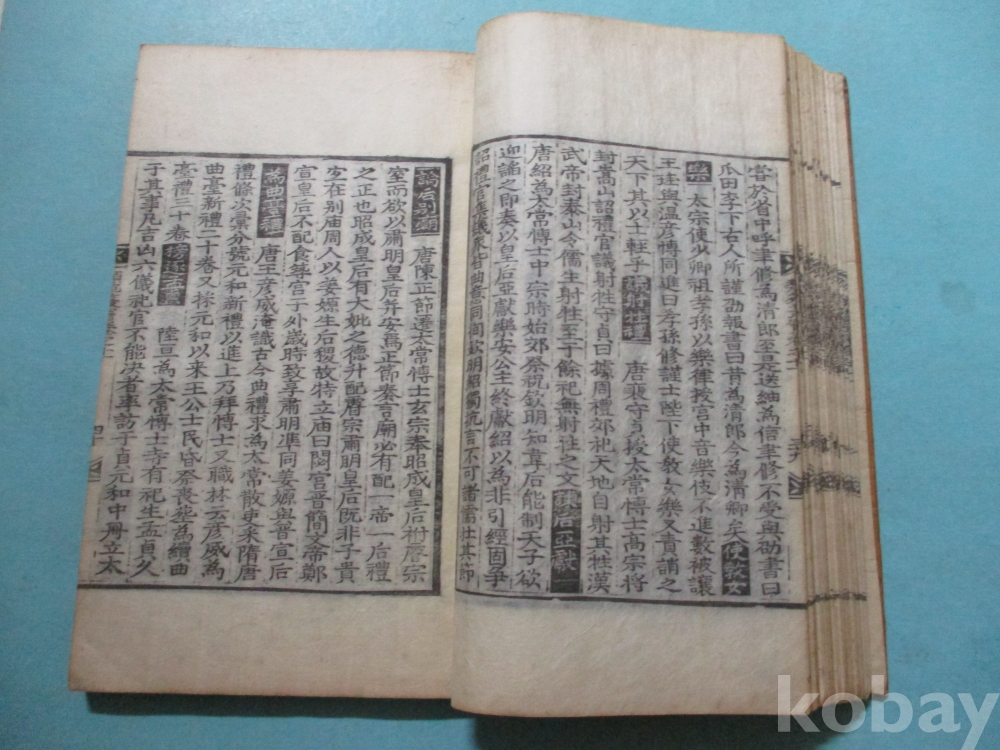 嘗於省中呼聿修為清郎至是送紬為信聿修不受與劭書曰
瓜田李下古人所謹劭報書曰昔為清郎今為清卿矣使教女
樂 太宗使少卿祖孝孫以樂律授宮中音樂伎不進數被讓
王珪與温彦博同進曰孝孫修謹士陛下使教女樂又責誚之
天下其以士輕乎 唐裴守貞授太常博士高宗將
封嵩山詔禮官議射牲守貞曰據周禮郊祀天地自射其牲漢
武帝封泰山令儒生射牲至于餘祀無射牲之文 亞獻
唐紹為太常博士中宗時始郊祭祝欽明知韋后能制天子欲
迎謟之即奏以皇后亞獻樂安公主終獻紹以為非引經固争
別廟 唐陳正節遷太常博士玄宗奉昭成皇后祔睿宗
室而欲以肅明皇后并安焉正節奏言廟必有配一帝一后禮
之正也昭成皇后有大姒之德升配睿宗肅明皇后既非子貴
宜在别庙周人以姜嫄生后稷故特立庙曰閟宫晋簡文帝鄭
宣皇后不配食築宫于外歳時致享肅明凖同姜嫄與晋宣后
為曲臺禮 唐王彦威淹識古今典禮求為太常散吏采隋唐
禮條次彚分號元和新禮以進上乃拜博士又職林云彦威為
曲臺新禮二十卷又採元和以來王公士民昏祭喪葬為續曲
臺禮三十卷 陸亘為太常博士寺有祀生孟真久
于其事凡吉凶六儀祀官不能决者率訪于真元和中冊立太
kobay